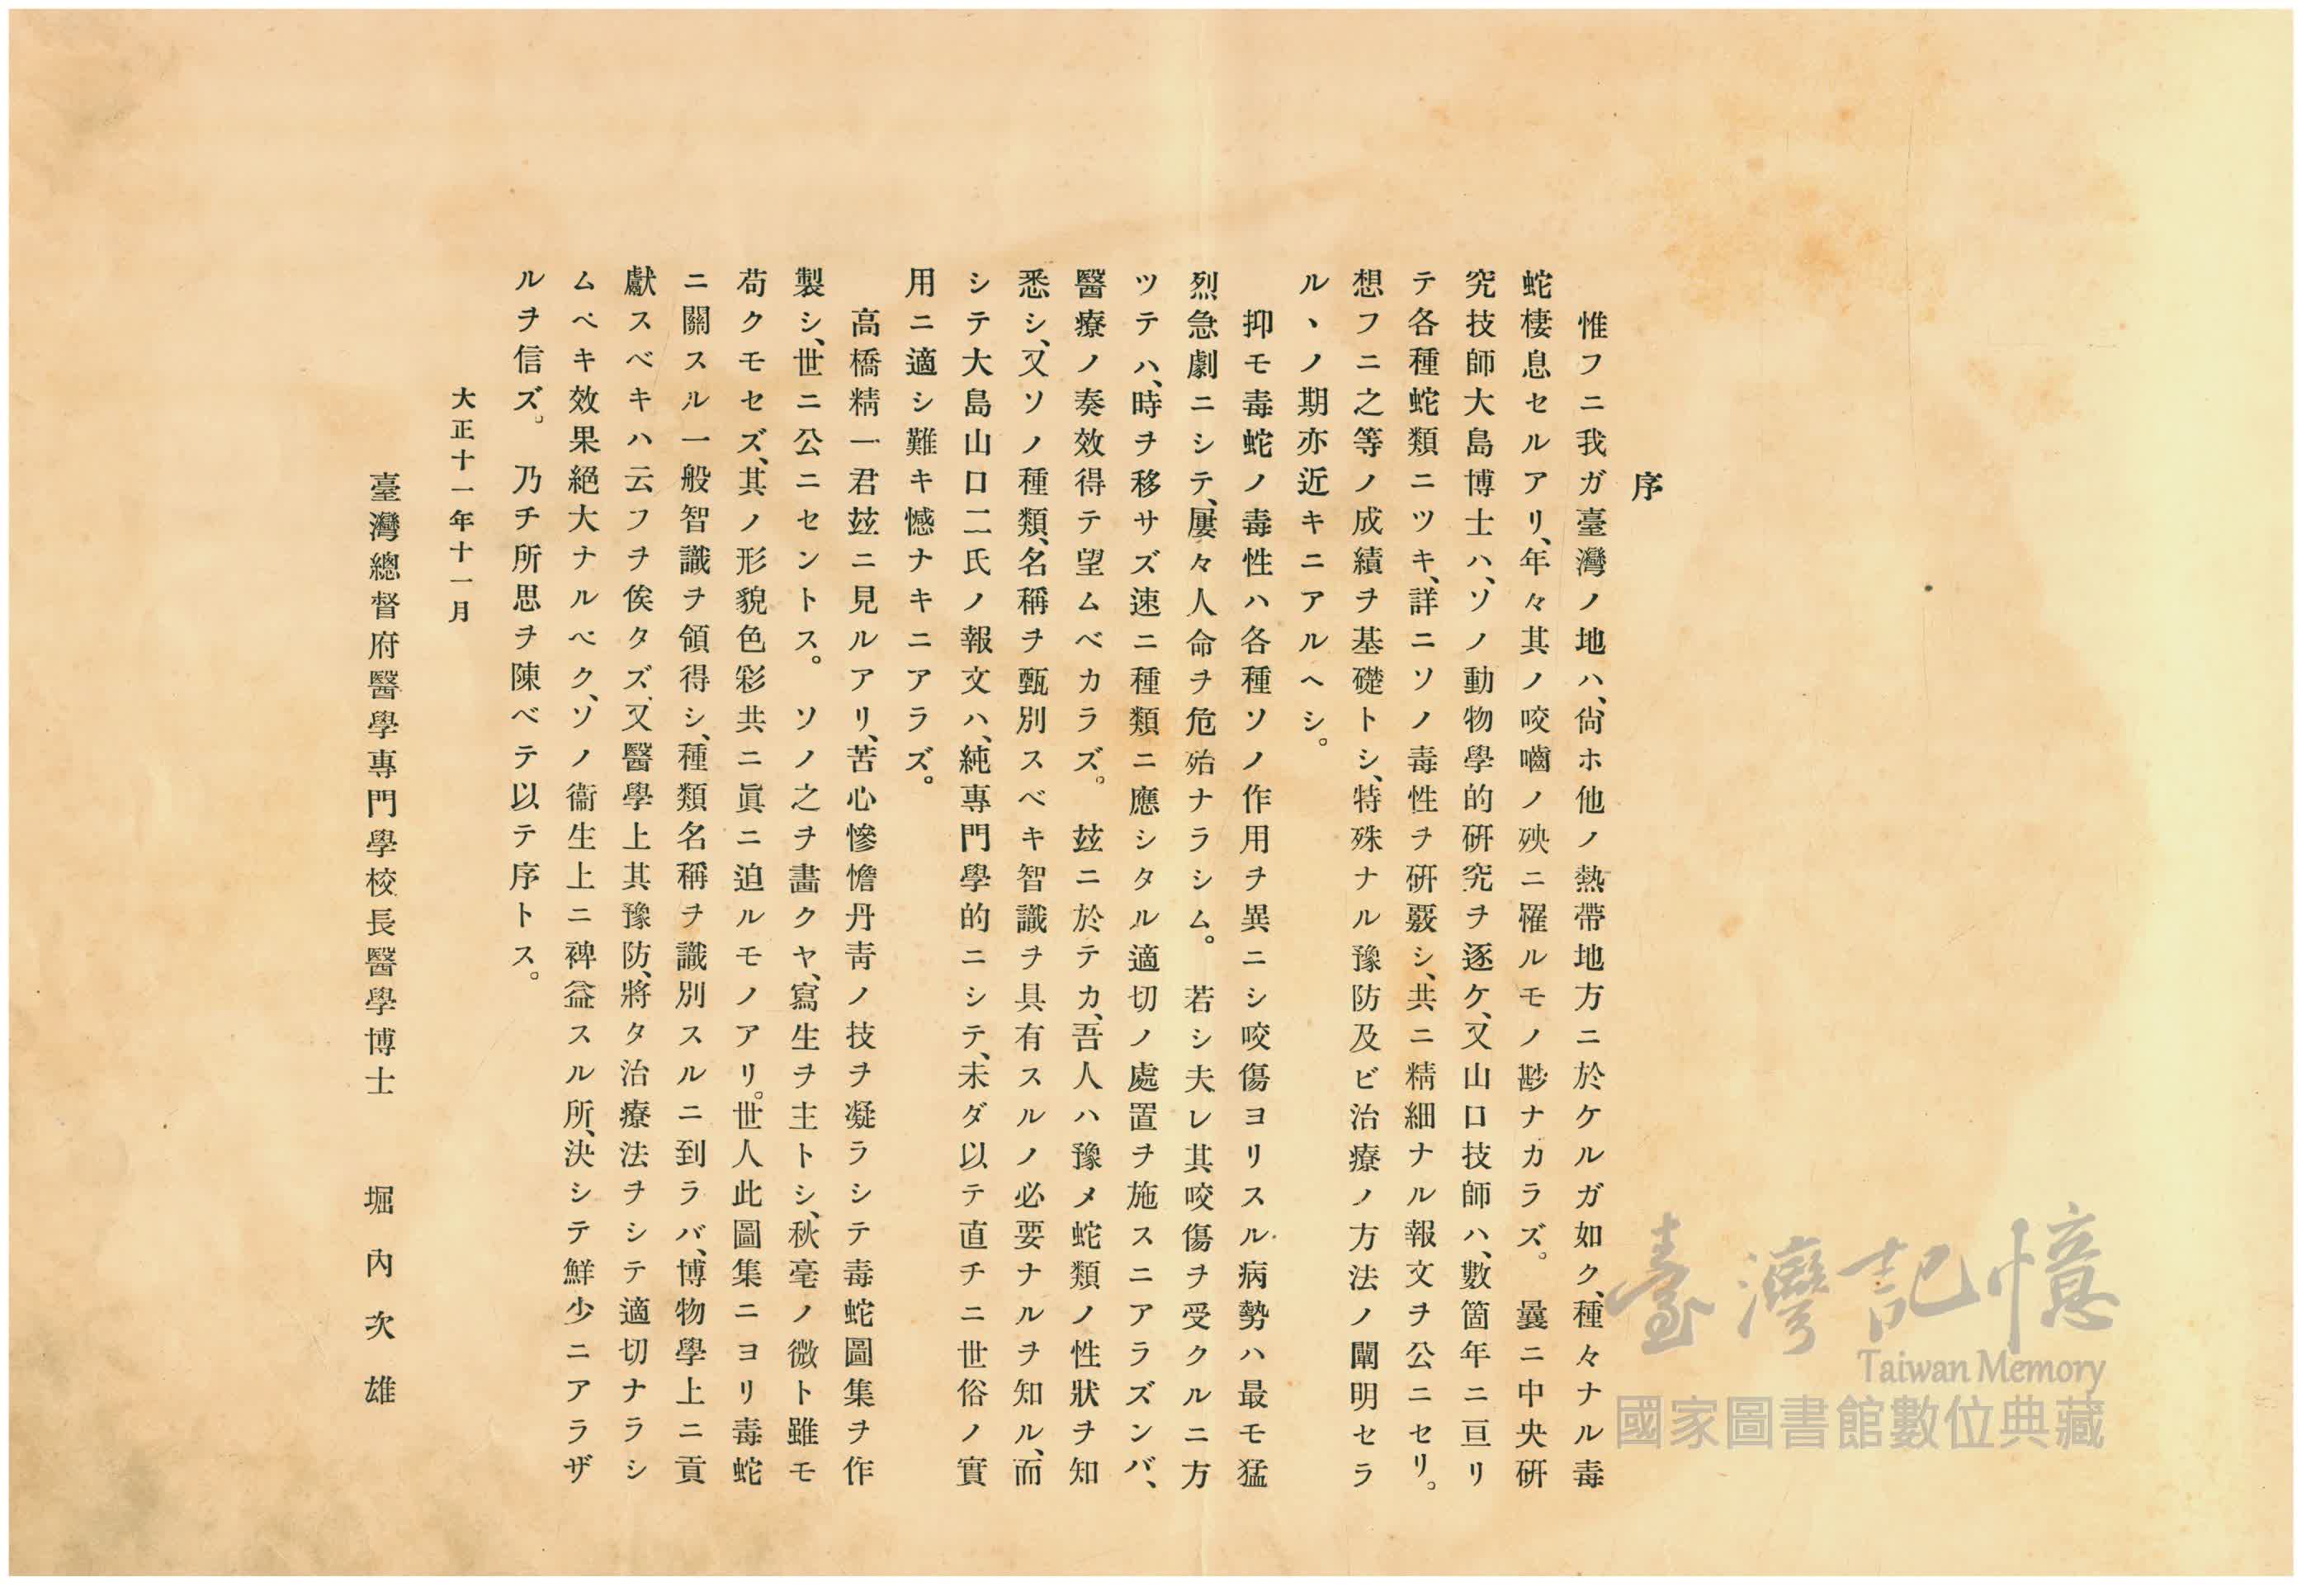 序
惟フニ我ガ臺灣ノ地ハ、尙ホ他ノ熱帶地方ニ於ケルガ如ク、種々ナル毒
蛇棲息セルアリ、年々其ノ咬嚙ノ殃ニ罹ルモノ尠ナカラズ。曩ニ中央硏
究技師大島博士ハ、ソノ動物學的硏究ヲ逐ケ、又山口技師ハ、數箇年ニ亘リ
テ各種蛇類ニツキ、詳ニソノ毒性ヲ硏覈シ、共ニ精細ナル報文ヲ公ニセリ。
想フニ之等ノ成績ヲ基礎トシ、特殊ナル豫防及ビ治療ノ方法ノ闡明セラ
ルヽノ期亦近キニアルヘシ。
抑モ毒蛇ノ毒性ハ各種ソノ作用ヲ異ニシ咬傷ヨリスル病勢ハ最モ猛
烈急劇ニシテ、屢々人命ヲ危殆ナラシム。若シ夫レ其咬傷ヲ受クルニ方
ツテハ、時ヲ移サズ速ニ種類ニ應シタル適切ノ處置ヲ施スニアラズンバ、
醫療ノ奏效得テ望ムベカラズ。玆ニ於テカ、吾人ハ豫メ蛇類ノ性狀ヲ知
悉シ、又ソノ種類、名稱ヲ甄別スベキ智識ヲ具有スルノ必要ナルヲ知ル、而
シテ大島山口二氏ノ報文ハ、純專門學的ニシテ、未ダ以テ直チニ世俗ノ實
用ニ適シ難キ憾ナキニアラズ。
高橋精一君玆ニ見ルアリ、苦心慘憺丹靑ノ技ヲ凝ラシテ毒蛇圖集ヲ作
製シ、世ニ公ニセントス。ソノ之ヲ畵クヤ、寫生ヲ主トシ、秋毫ノ微ト雖モ
苟クモセズ、其ノ形貌色彩共ニ眞ニ迫ルモノアリ。世人此圖集ニヨリ毒蛇
ニ關スル一般智識ヲ領得シ、種類名稱ヲ識別スルニ到ラバ、博物學上ニ貢
獻スベキハ云フヲ俟タズ、又醫學上其豫防、將タ治療法ヲシテ適切ナラシ
ムベキ效果絕大ナルベク、ソノ衞生上ニ裨益スル所、決シテ鮮少ニアラザ
ルヲ信ズ。乃チ所思ヲ陳ベテ以テ序トス。
大正十一年十一月
臺灣總督府醫學專門學校長醫學博士 堀內次雄
臺灣記憶
Taiwan Memory
國家圖書館數位典藏